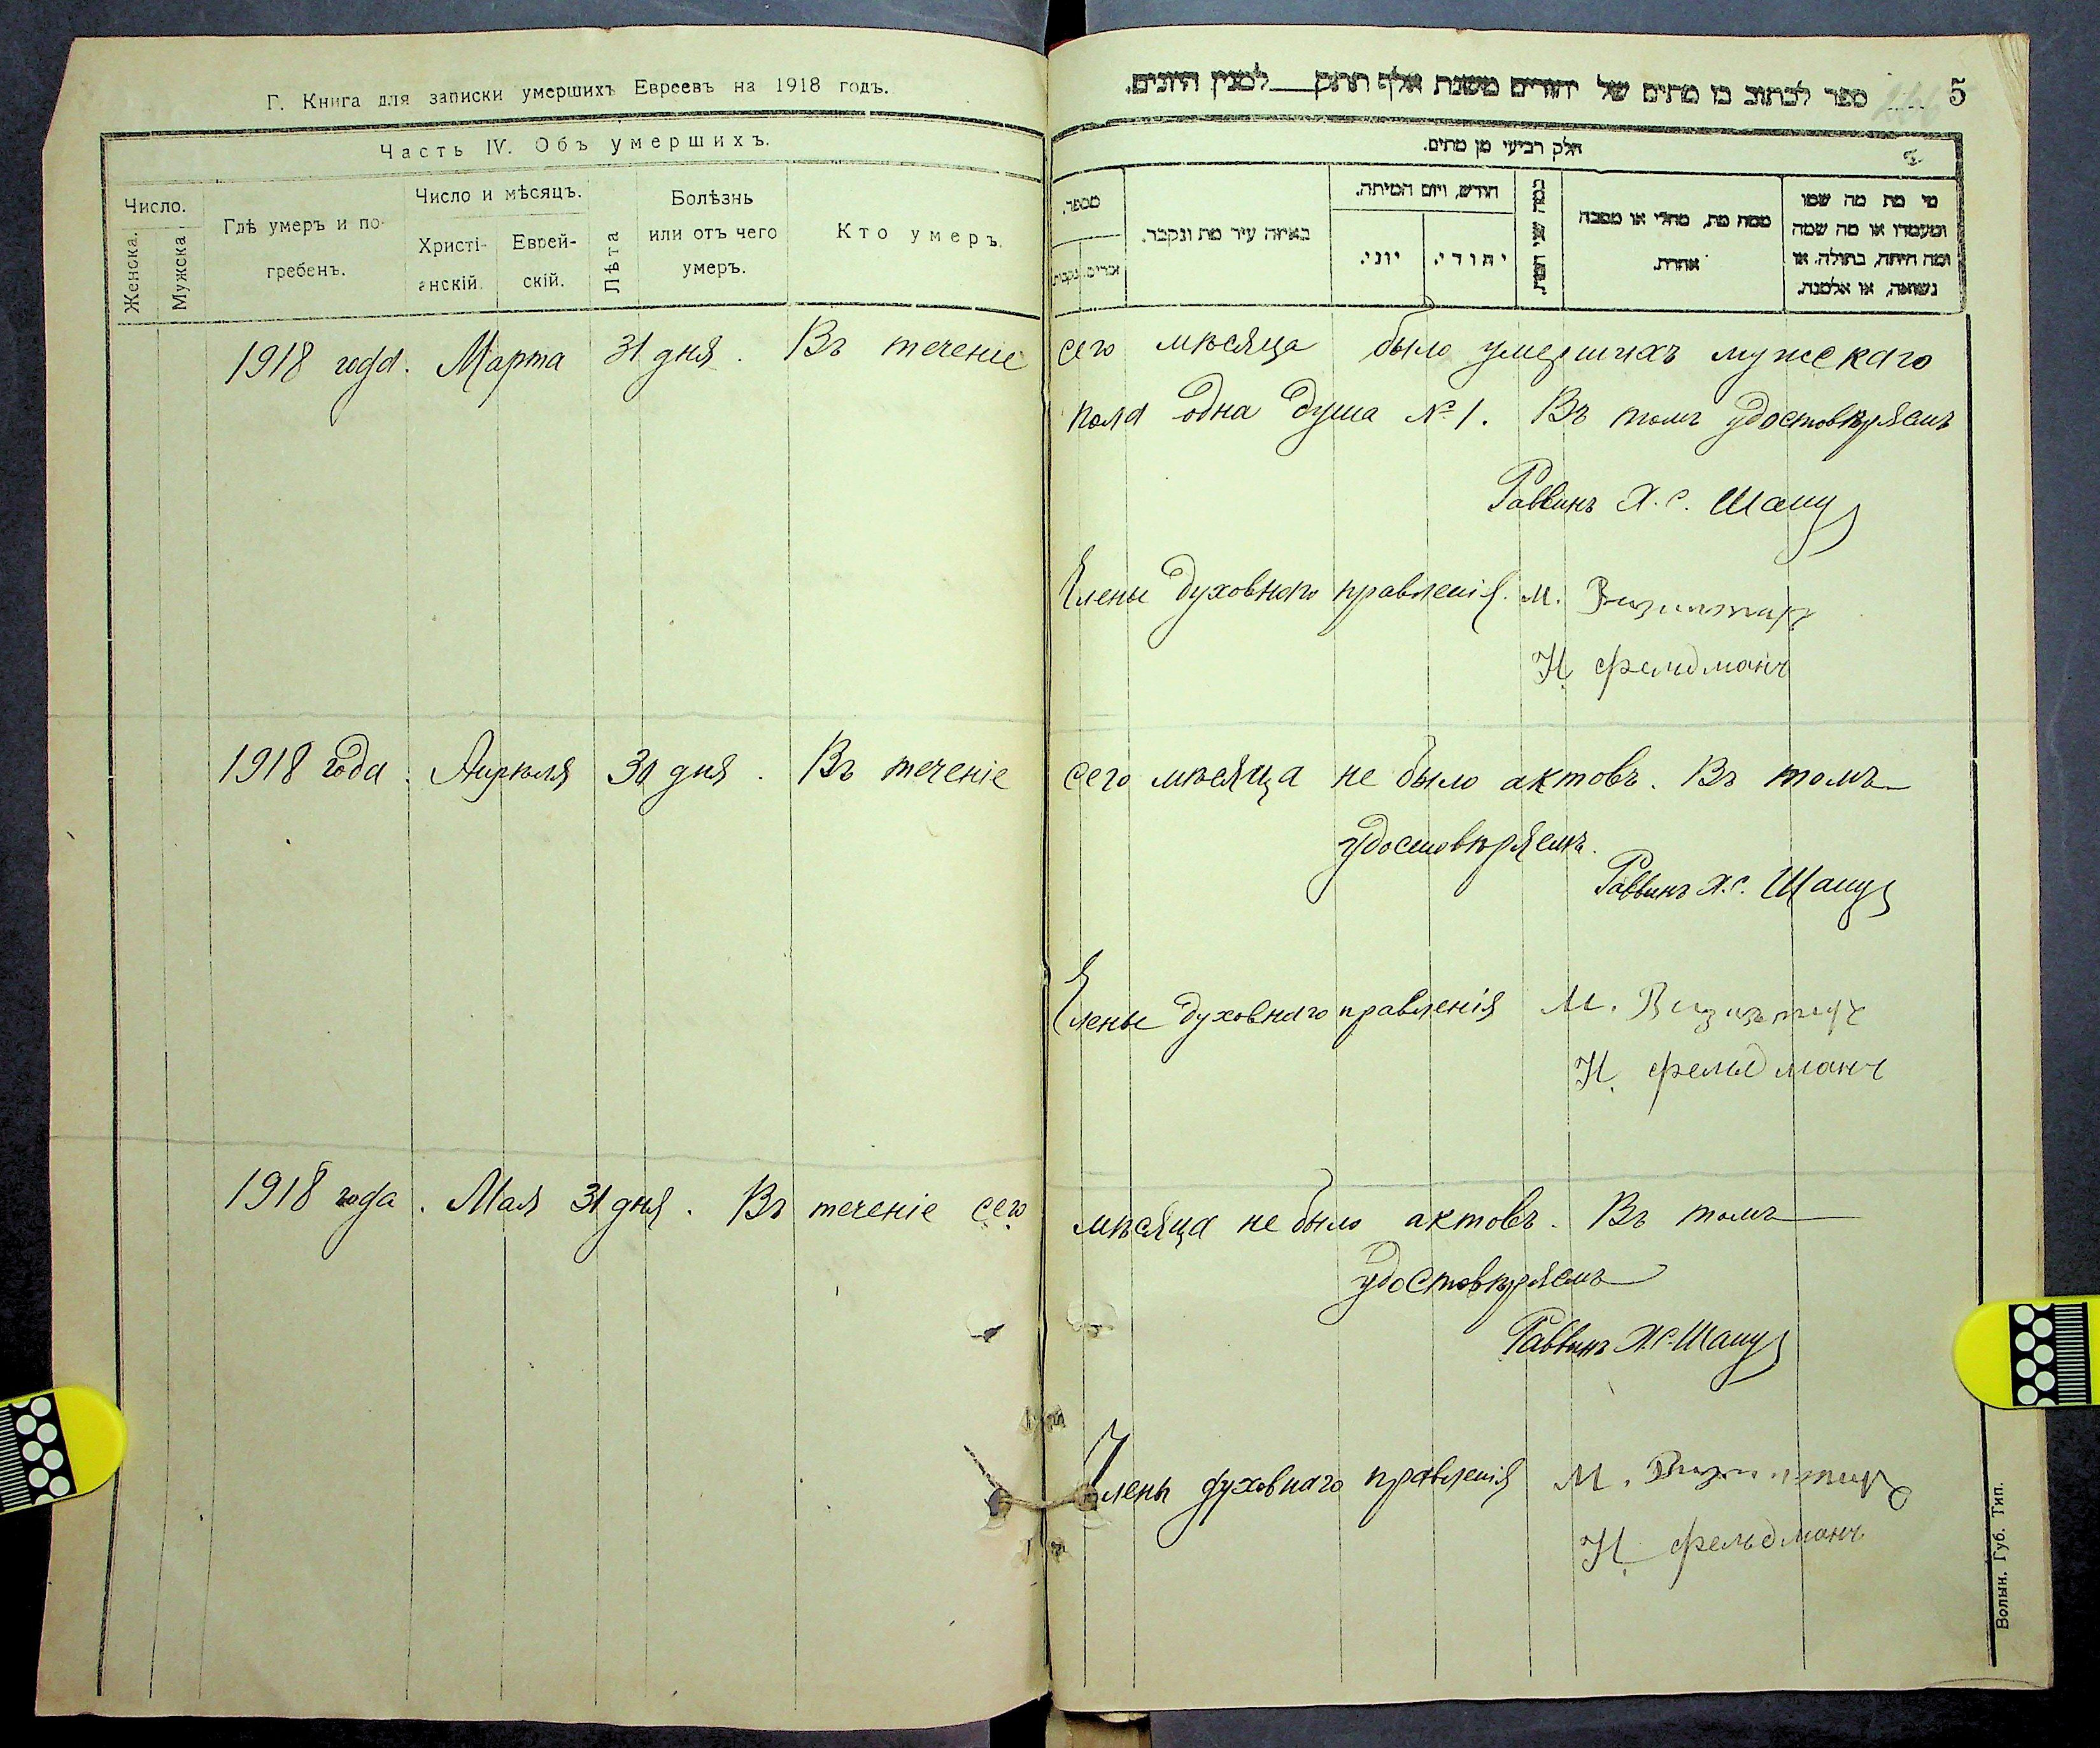 Г. Книга для записки умершихъ Евреевъ на 1918 годъ.
Часть IV. Объ умершихъ.
Число.
Женска.
Мужска
Гдѣ умеръ и по-
гребенъ.
Число и мѣсяцъ.
Христі-
анскій.
Еврей-
скій.
Лѣта
Болѣзнь
или отъ чего
умеръ.
Кто умеръ.
ספר לכתוב בו מתים של יהודים משנת אלף תתק למנין היונים.
5
חלק רביעי מן מתים.
מספר.
זכרים.
נקבות
באיזה עיר מת ונקבר.
חודש, ויום המיתה.
יוני.
יהודי.
ממה מת, מחלי או מסבה
אחרת.
מי מת מה שמו
ומעמדו או מה שמה
ומה היתה, בתולה או
נשואה, או אלמנה.
1918 года. Марта 31 дня. Въ теченіе сего мѣсяца было умершихъ мужскаго
пола одна душа № 1. Въ томъ удостовѣряемъ
Раввинъ Х. С.
Члены духовнаго правленія. М.
Н. Фельдманъ
1918 года. Апрѣля 30 дня. Въ теченіе сего мѣсяца не было актовъ. Въ томъ
удостовѣряемъ.
Раввинъ Х. С.
Члены духовнаго правленія М.
Н. Фельдманъ
1918 года. Мая 31 дня. Въ теченіе сего мѣсяца не было актовъ. Въ томъ
удостовѣряемъ
Раввинъ Х. С.
Члены духовнаго правленія М.
Н. Фельдманъ
Волын. Губ. Тип.